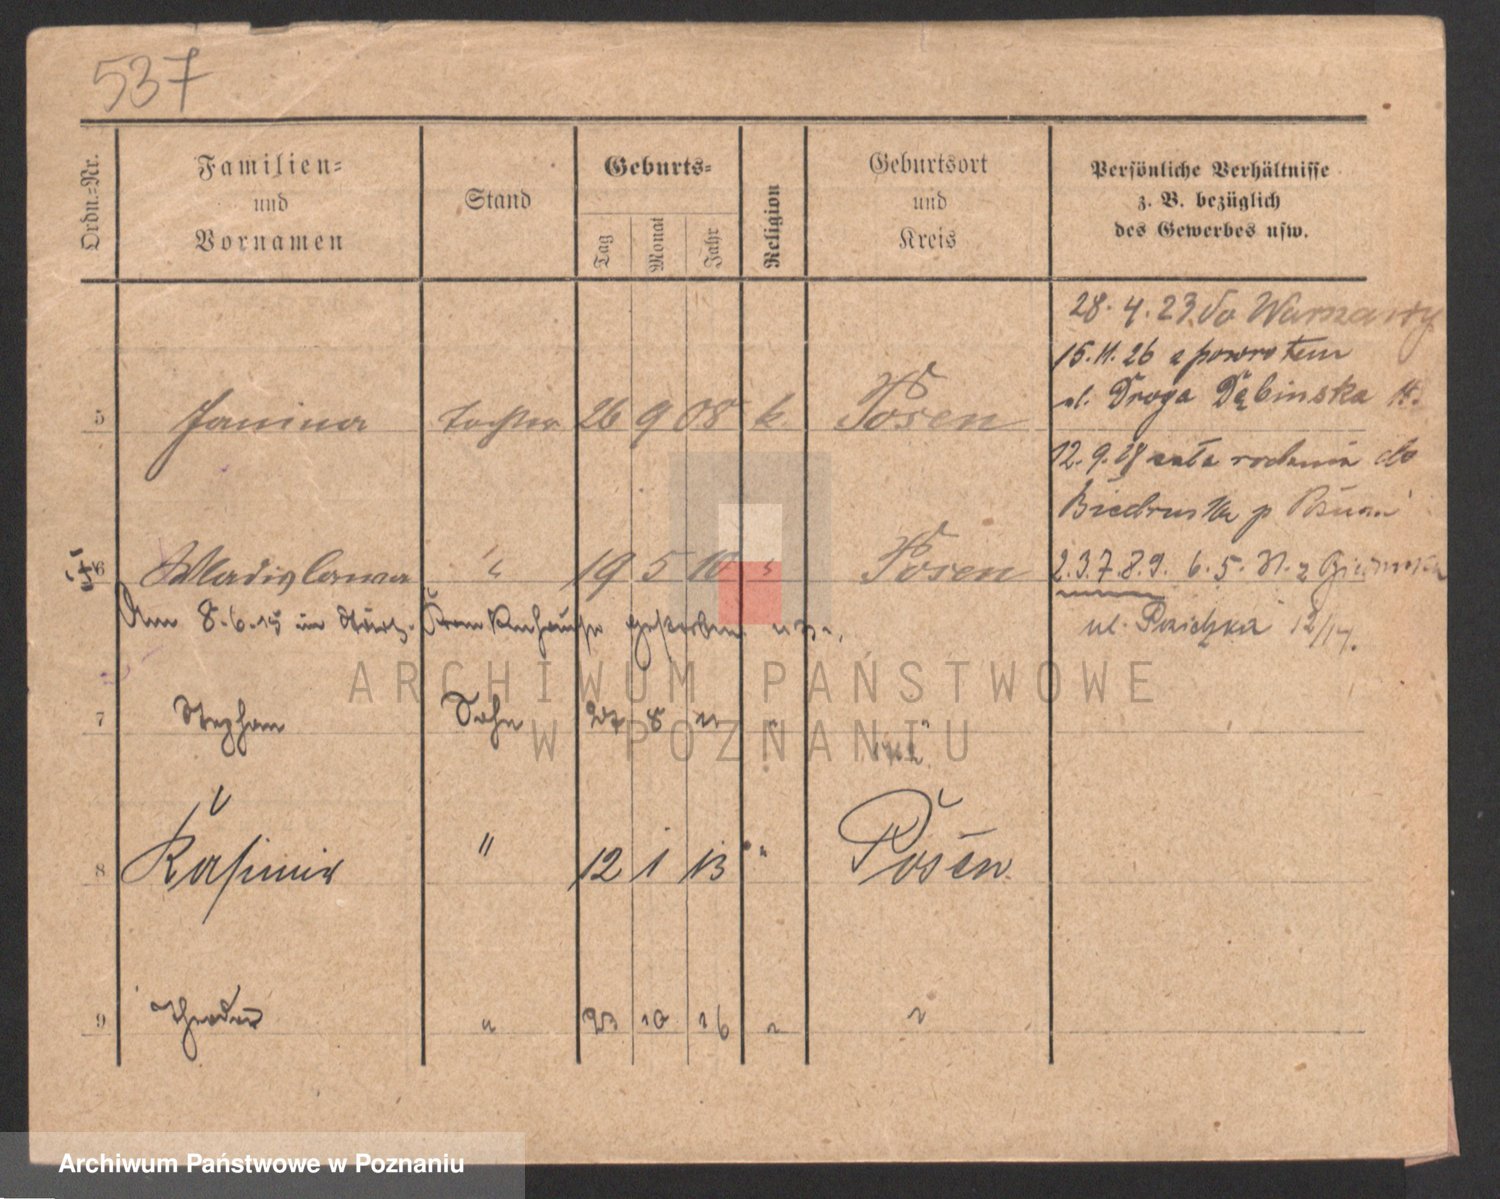 537
Ordn.-Nr.
Familien-
und
Vornamen
Stand
Geburts-
Tag
Monat
Jahr
Religion
Geburtsort
und
Kreis
Persönliche Verhältnisse
z. B. bezüglich
des Gewerbes usw.
28. 4. 23 do Warszawy
15. 11. 26 z powrotem
ul. Droga Dębinska
5 Janina Tochter 26 9 08 k. Posen
12. 9. rodzina do
Biedruska p Poznań
6 Wladislawa " 19 5 10 " Posen
2. 3. 7. 8. 9. 6. 5. z
Am 8.6.15 im Krankenhause gestorben
ul.
7 Stephan Sohn 27 8 11 " "
8 Kasimir " 12 1 13 " Posen
9 Theodor " 23 10 16 " "
ARCHIWUM PAŃSTWOWE
W POZNANIU
Archiwum Państwowe w Poznaniu